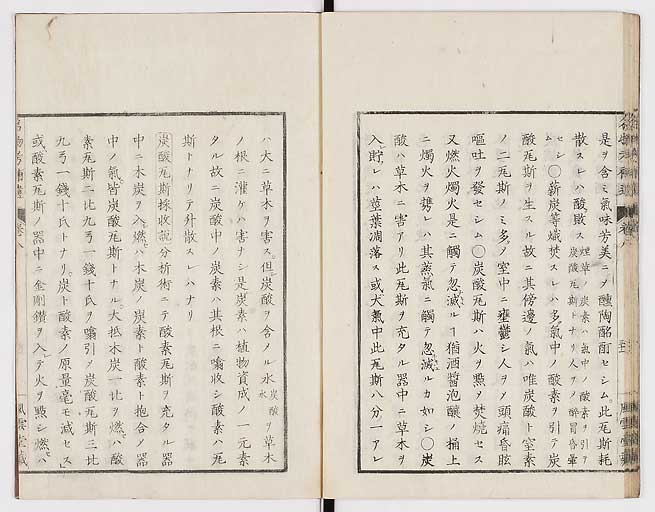 是ヲ含ミ氣味芳美ニ〆醺陶酩酊セシム。此瓦斯耗
散スレハ酸敗ス
セシ〇薪炭等熾焚スレハ多氣中ノ酸素ヲ引テ炭
酸瓦斯ヲ生スル故ニ其傍邊ノ氣ハ唯炭酸ト窒素
ノ二瓦斯ノミ多ノ室中ニ壅鬱シ人ヲ〆頭痛昏眩
嘔吐ヲ發セシム〇炭酸瓦斯ハ火ヲ點〆焚燒セス
又燃火燭火是ニ觸テ忽滅ルヿ猶酒醬泡釀ノ桶上
ニ燭火ヲ携レハ其蒸氣ニ觸テ忽滅ルカ如シ〇炭
酸ハ草木ニ害アリ此瓦斯ヲ充タル器中ニ草木ヲ
入貯レハ莖葉凋落ス或大氣中此瓦斯八分一アレ
ハ大ニ草木ヲ害ス。但炭酸ヲ含ノル水炭酸水ヲ草木
ノ根ニ灌ケハ害ナシ是炭素ハ植物資成ノ一元素
タル故ニ炭酸中ノ炭素ハ其根ニ吸收シ酸素ハ瓦
斯トナリテ升散スレハナリ
炭酸瓦斯採收說分析術ニテ酸素瓦斯ヲ充タル器
中ニ木炭ヲ入燃ハ木炭ノ炭素ト酸素ト抱合〆器
中ノ氣皆炭酸瓦斯トナル。大抵木炭一比ヲ燃ハ酸
素瓦斯二比九弓一錢十氏ヲ噏引〆炭酸瓦斯三比
九弓一錢十氏トナリ。炭ト酸素ノ原量毫モ減セス
或酸素瓦斯ノ器中ニ金剛鑽ヲ入テ火ヲ點シ燃ハ
風雲堂藏